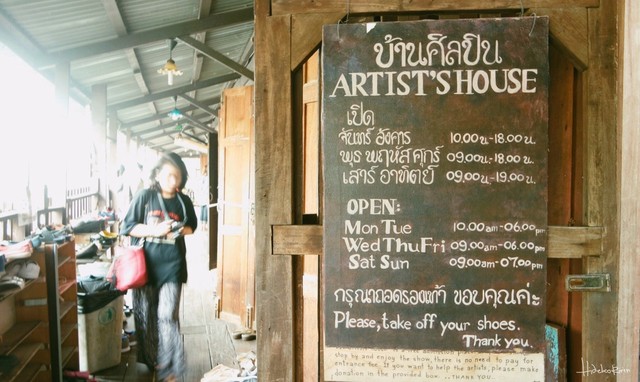 บ้านศิลปิน
ARTIST'S HOUSE
เปิด
จันทร์ อังคาร 10.00 น.-18.00 น.
พุธ พฤหัส ศุกร์ 09.00 น.-18.00 น.
เสาร์ อาทิตย์ 09.00 น.-19.00 น.
OPEN:
Mon Tue 10.00 am-06.00 pm
Wed Thu Fri 09.00 am-06.00 pm
Sat Sun 09.00 am-07.00 pm
กรุณาถอดรองเท้า ขอบคุณค่ะ
Please, take off your shoes.
Thank you.
stop by and enjoy the show, there is no need to pay for
entrance fee. If you want to help the artists, please make
donation in the provided box. Thank you.